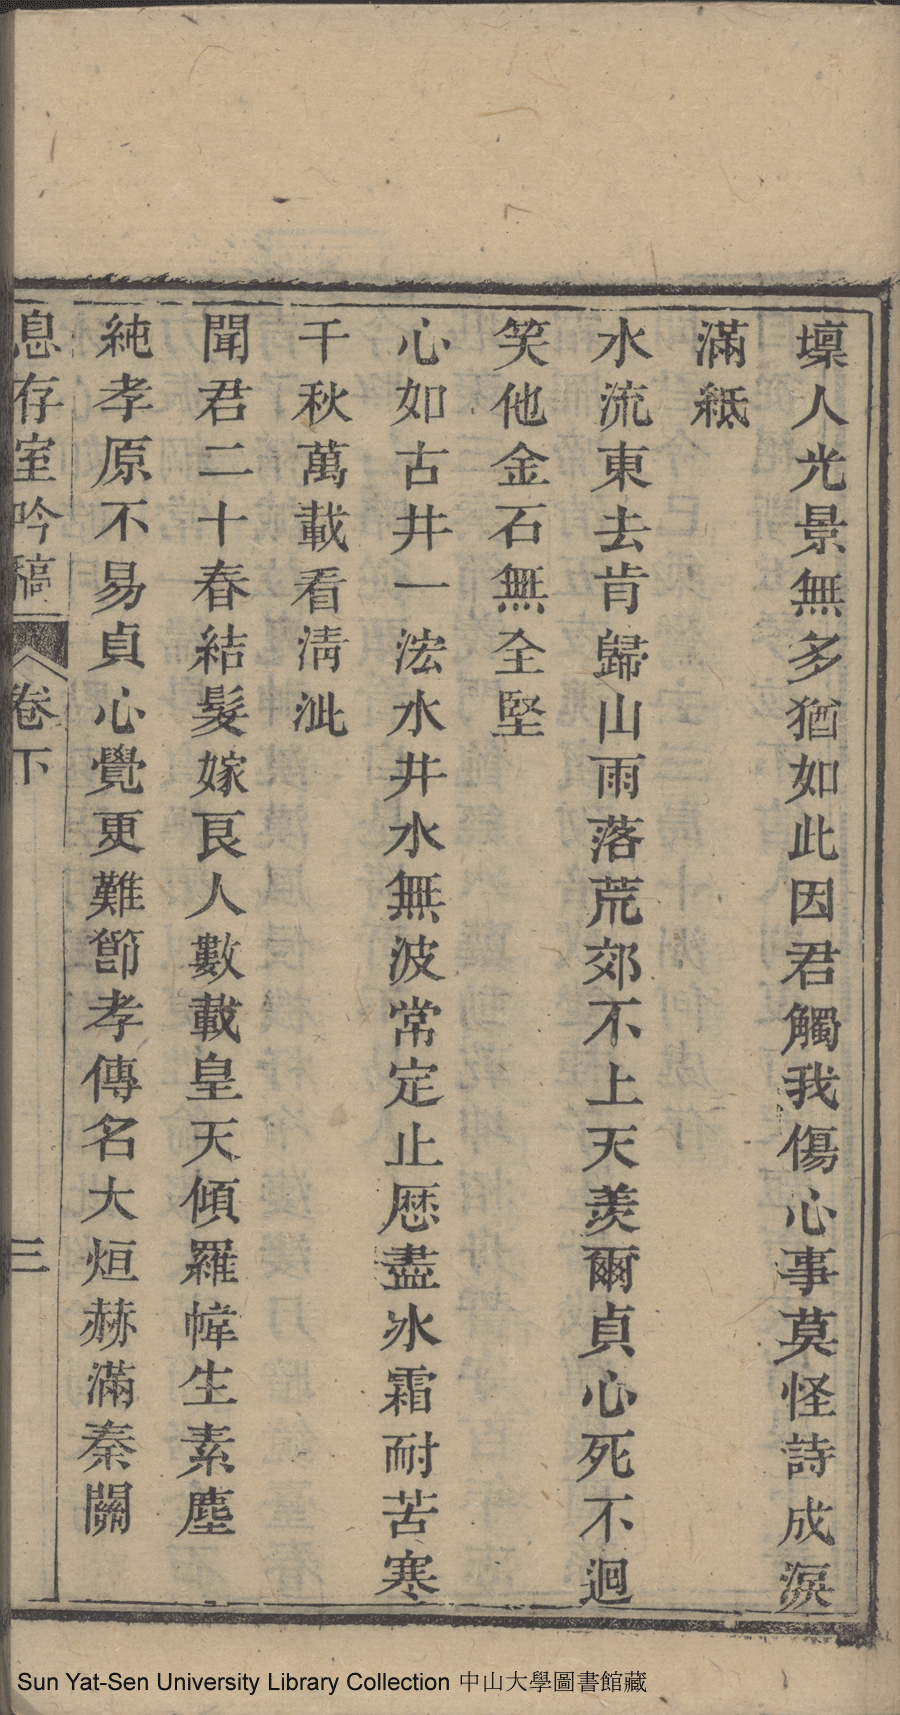 壈人光景無多猶如此因君觸我傷心事莫怪詩成淚
滿紙
水流東去肯歸山雨落荒郊不上天羨爾貞心死不迴
笑他金石無全堅
心如古井一泓水井水無波常定止歷盡冰霜耐苦寒
千秋萬載看淸泚
聞君二十春結髮嫁良人數載皇天傾羅幃生素塵
純孝原不易貞心覺更難節孝傳名大烜赫滿秦關
息存室吟稿 卷下 三
Sun Yat-Sen University Library Collection 中山大學圖書館藏